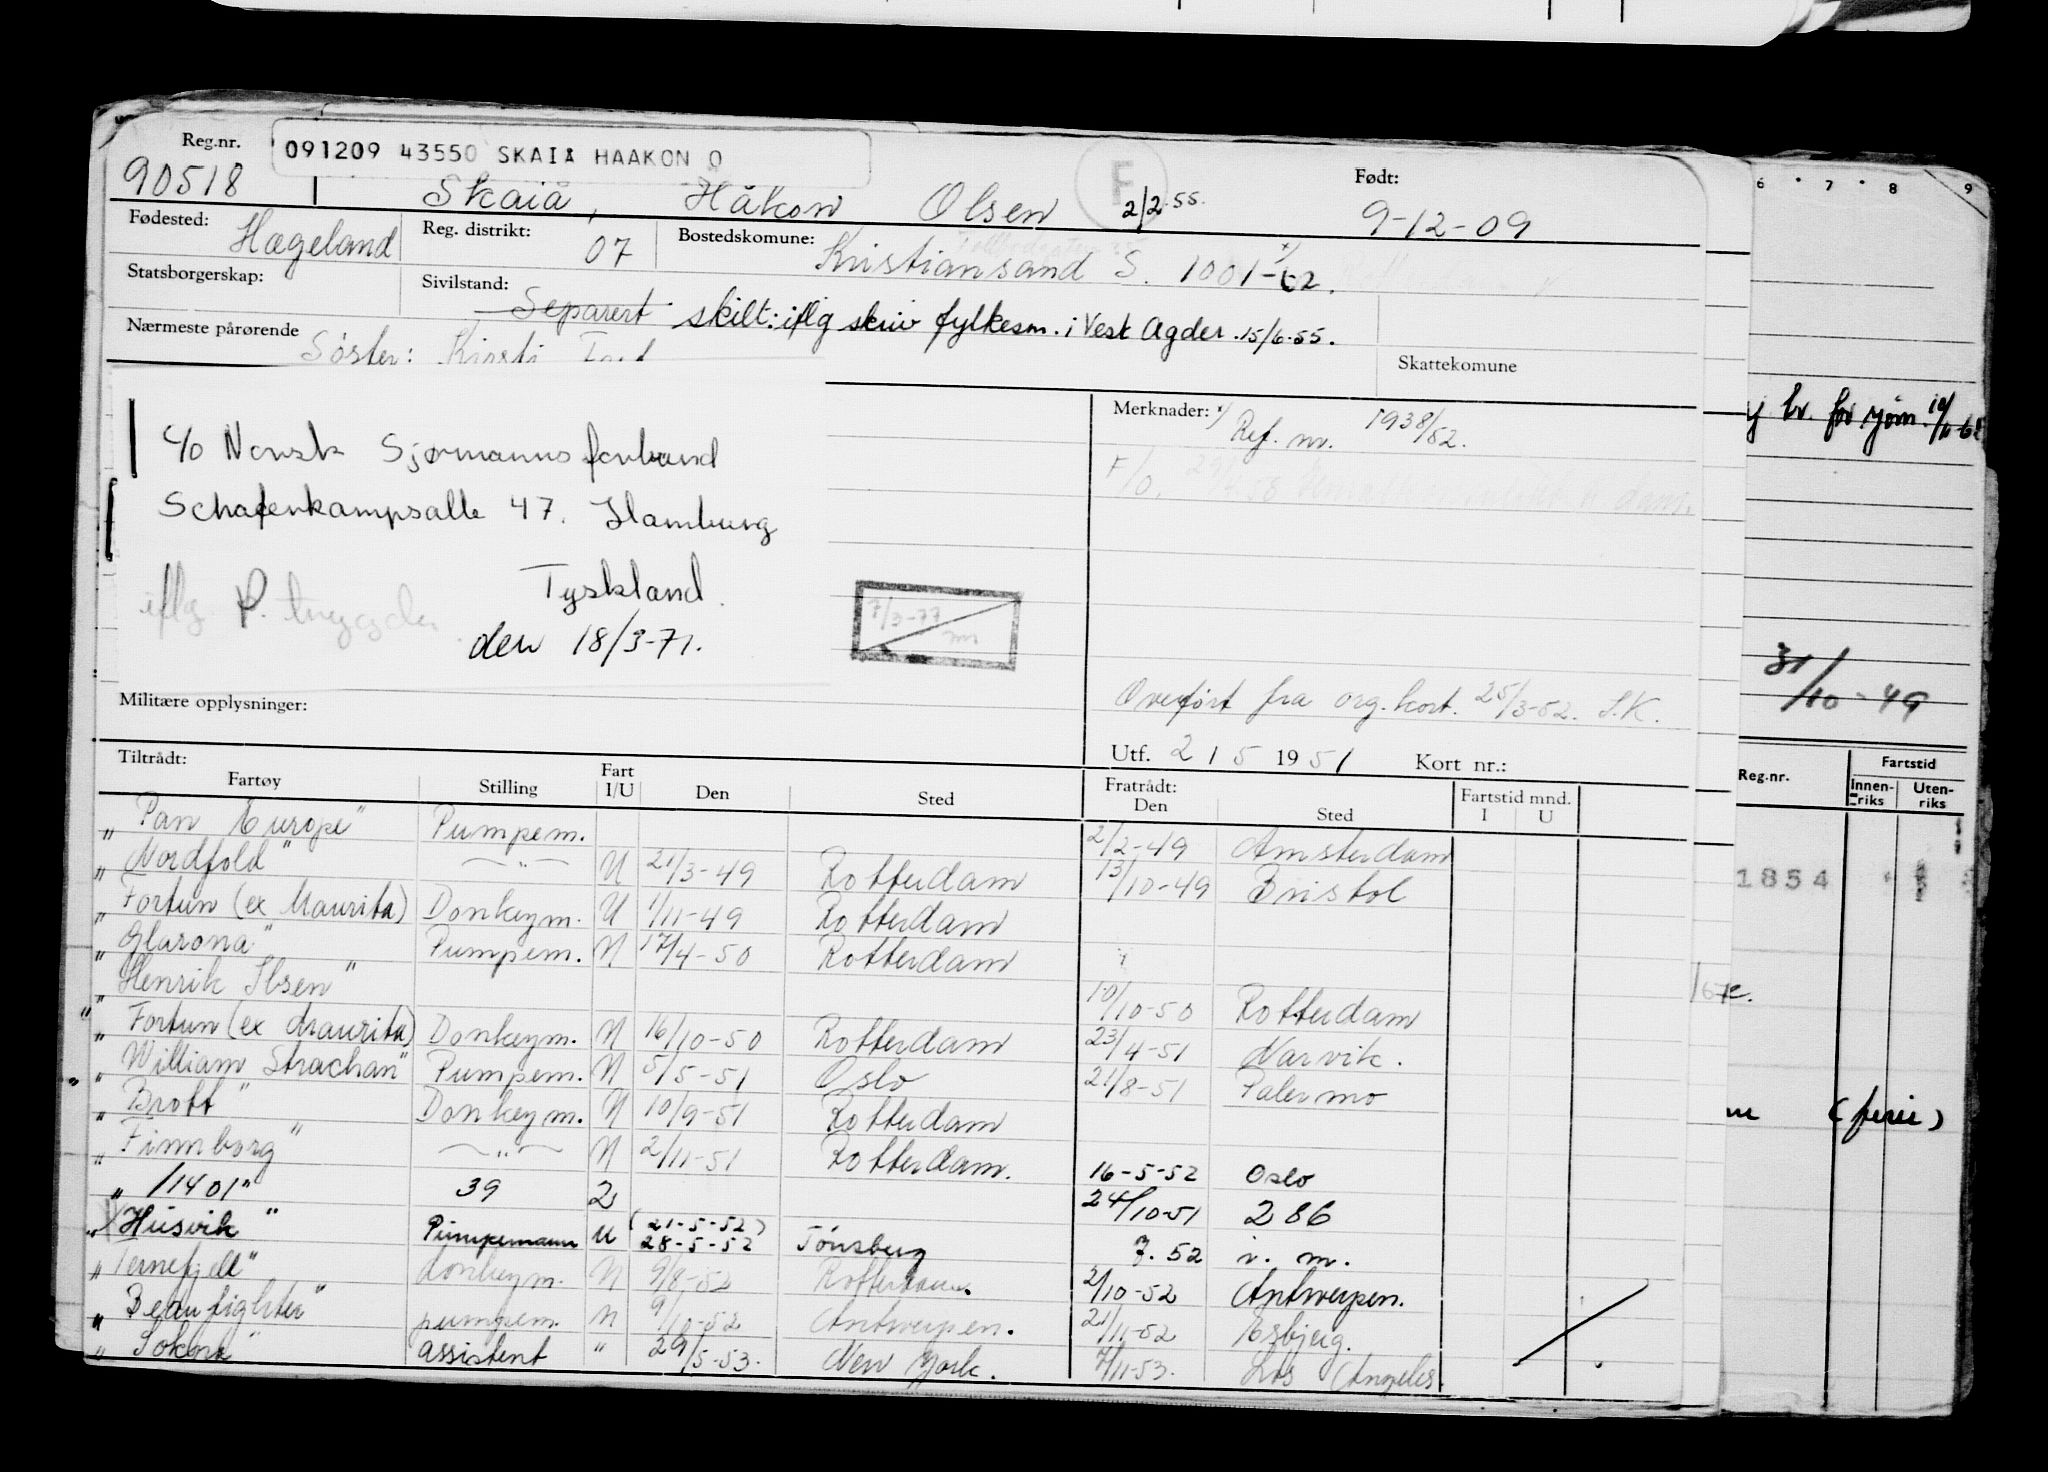 Reg.nr. 091209 43550 SKAIÅ HAAKON O
90518 Skaiå, Håkon Olsen F 2/2.55. Født: 9-12-09
Fødested: Hægeland Reg. distrikt: 07 Bostedskomune: Kristiansand S. 1001-62.
Statsborgerskap: Sivilstand: Separert skilt: iflg skriv fylkesm. i Vest Agder. 15/6.55.
Nærmeste pårørende Søster: Kirsti
Skattekomune
Merknader: x) Ref. nr. 1938/52.
F/O.
c/o Norsk Sjømannsforbund
Schaferkampsalle 47. Hamburg
Tyskland.
iflg. P. trygder.
den 18/3-71.
7/3-77
Militære opplysninger:
Overført fra org.kort. 25/3-52. S.K.
Utf. 2 / 5 1951 Kort nr.:
Tiltrådt: Fratrådt:
Fartøy Stilling Fart I/U Den Sted Den Sted Fartstid mnd. I U
"Pan Europe" Pumpem. 2/2-49 Amsterdam
"Nordfold" —"— U 21/3-49 Rotterdam 13/10-49 Bristol
"Fortun (ex Maurita) Donkeym. U 1/11-49 Rotterdam
"Glarona" Pumpem. U 17/4-50 Rotterdam
"Henrik Ibsen" 10/10-50 Rotterdam
"Fortun (ex Maurita) Donkeym. U 16/10-50 Rotterdam 23/4-51 Narvik.
"William Strachan" Pumpem. U 5/5-51 Oslo 21/8-51 Palermo
"Brott" Donkeym. U 10/9-51 Rotterdam
"Finnborg" —"— U 2/11-51 Rotterdam. 16-5-52 Oslo
"11401" 39 2 24/10-51 286
"Husvik" Pumpemann U (21-5-52) 28-5-52 Tönsberg 7. 52 i. m.
"Ternefjell" donkeym. U 9/8-52 Rotterdam. 2/10-52 Antwerpen.
"Beaufighter" pumpem. U 9/10-52 Antwerpen. 21/11-52 Esbjerg.
"Sokna" assistent " 29/5-53. New York. 7/11-53. Los Angeles.
6 7 8 9
br. for sjøm. 10/11-62
31/10-49
Reg.nr. Fartstid Innen-riks Uten-riks
1854
(ferie)